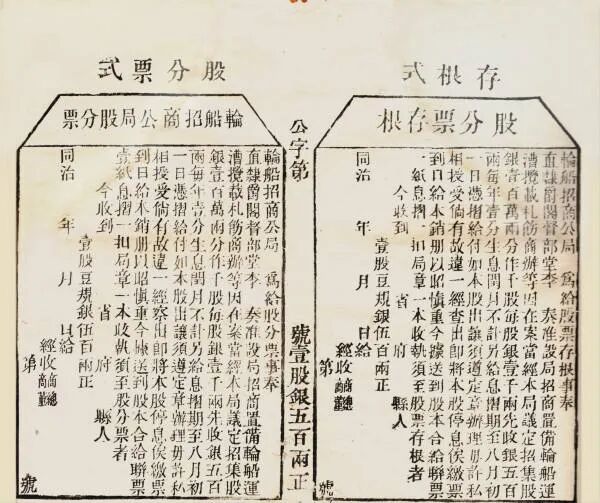 存根式
股分票存根
輪船招商公局　爲給股票存根事奉
直隸爵閣督部堂李　奏准設局招商置備輪船運
漕攬載札飭商辦等因在案當經本局議定招集股
銀壹百萬兩分作千股每股銀壹千兩先收銀五百
兩每年壹分生息閏月不計另給息摺期至八月初
一日憑摺給付如本股出讓須遵定章辦理毋許私
相授受倘有故違一經查出即將本股停息俟繳票
到日給本銷册以昭愼重今據送到股本合給聯票
一紙息摺一扣局章一本收執須至股票存根者
今收到　省　府　縣人
壹股豆規銀伍百兩正
同治　年　月　日給
經收商總商董
第　號
公字第　號壹股銀五百兩正
股分票式
輪船招商公局股分票
輪船招商公局　爲給股分票事奉
直隸爵閣督部堂李　奏准設局招商置備輪船運
漕攬載札飭商辦等因在案當經本局議定招集股
銀壹百萬兩分作千股每股銀壹千兩先收銀五百
兩每年壹分生息閏月不計另給息摺期至八月初
一日憑摺給付如本股出讓須遵定章辦理毋許私
相授受倘有故違一經察出即將本股停息俟繳票
到日給本銷册以昭愼重今據送到股本合給聯票
壹紙息摺一扣局章一本收執須至股分票者
今收到　省　府　縣人
壹股豆規銀伍百兩正
同治　年　月　日給
經收商總商董
第　號